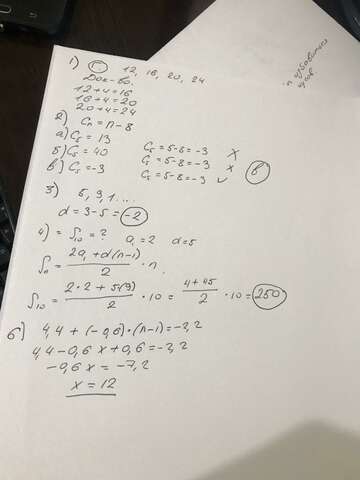 1) Г 12, 16, 20, 24
Док-во.
12+4=16
16+4=20
20+4=24
2) Cₙ = n-8
а) C₅ = 13 C₅ = 5-8 = -3 ✗
б) C₅ = 40 C₅ = 5-8 = -3 ✗
в) C₅ = -3 C₅ = 5-8 = -3 ✓ в
3) 5, 3, 1....
d = 3-5 = -2
4) = S₁₀ = ? a₁ = 2 d=5
Sₙ = (2a₁ + d(n-1))/2 · n
S₁₀ = (2·2 + 5(9))/2 · 10 = (4+45)/2 · 10 = 250
6) 4,4 + (-0,6)·(n-1) = -2,2
4,4 - 0,6x + 0,6 = -2,2
-0,6x = -7,2
x = 12